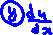 y dy/dx